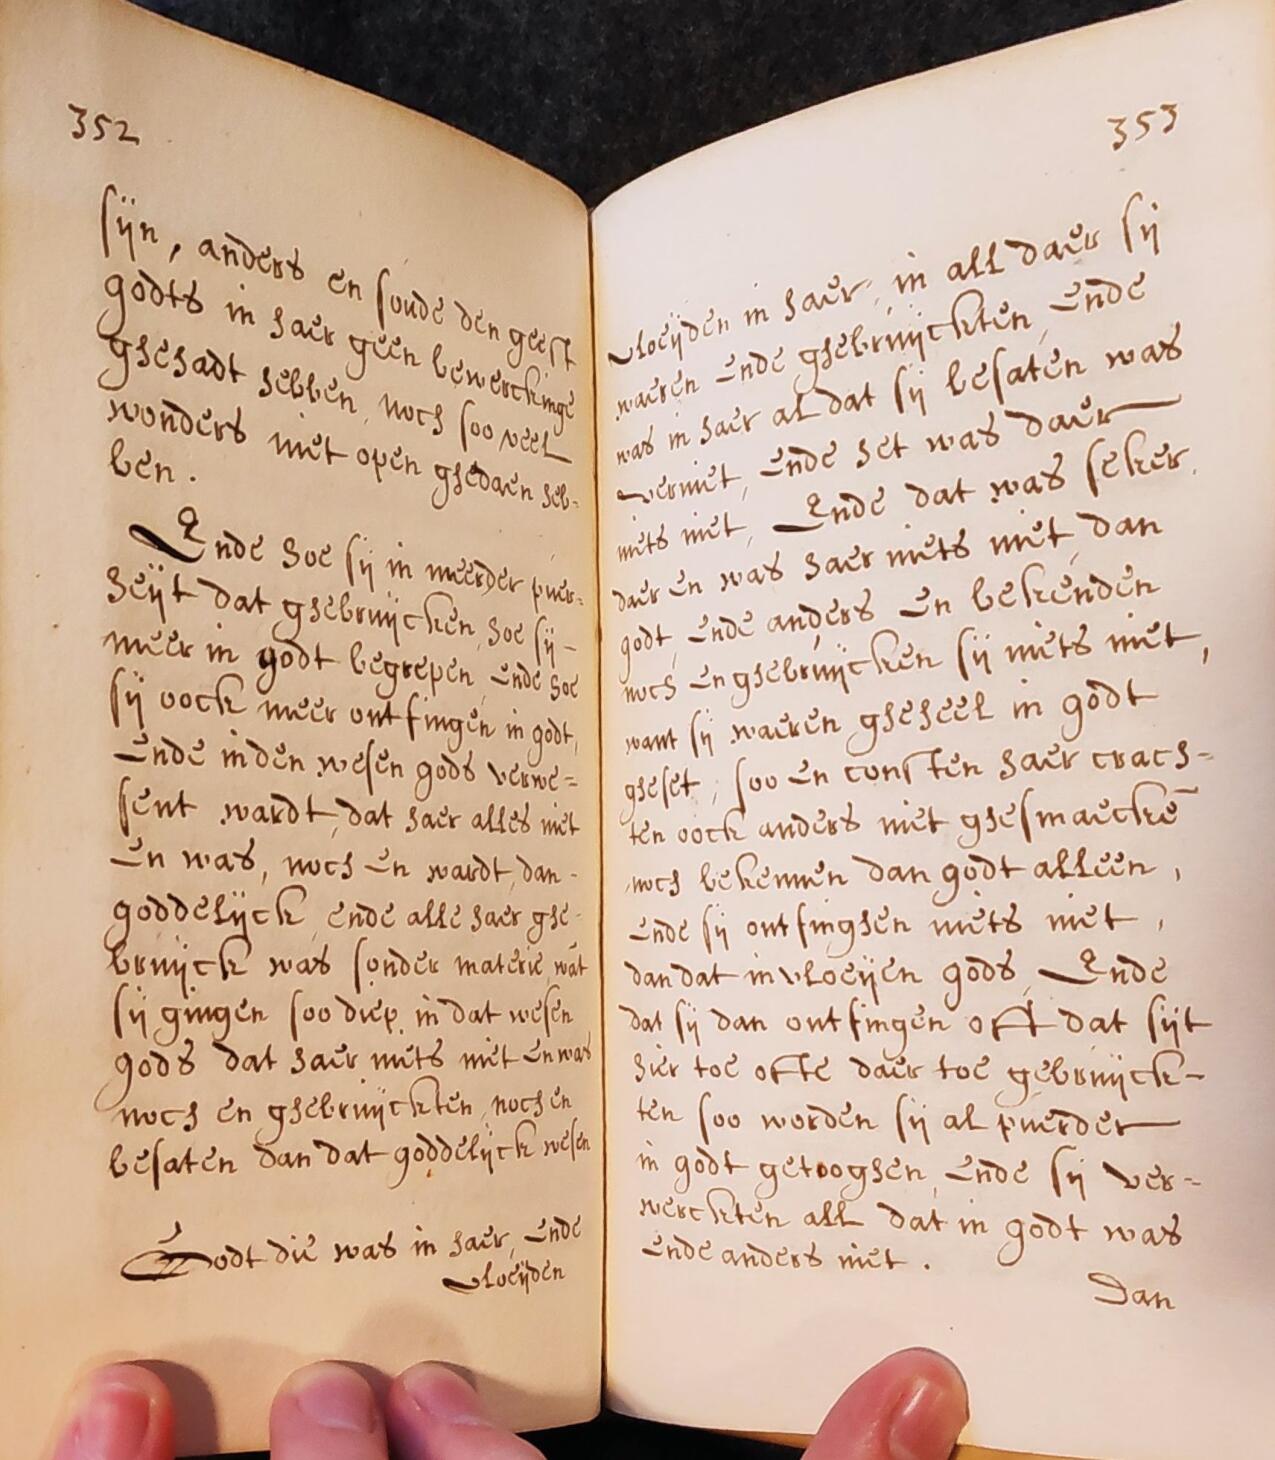 352
sijn, anders en soude den geest
godts in haer geen bewerckinge
ghehadt hebben, noch soo veel
wonders niet open ghedaen heb=
ben.
Ende hoe sij in meerder puer=
heijt dat ghebruijcken, hoe sij -
meer in godt begrepen, ende hoe
sij oock meer ontfingen in godt,
ende in den wesen gods verwe=
sent wardt, dat haer alles niet
en was, noch en wardt, dan -
goddelijck, ende alle haer ghe-
bruijck was sonder materie, wāt
sij gingen soo diep in dat wesen
gods dat haer niets niet en was
noch en ghebruijckten, noch en
besaten dan dat goddelijck wesen
Godt die was in haer, ende
vloeijden
353
vloeijden in haer, in all daer sij
waeren ende ghebruijckten, ende
was in haer al dat sij besaten was
verniet, ende het was daer
niets niet, Ende dat was seker,
daer en was haer niets niet, dan
godt, ende anders en bekenden
noch en ghebruijcken sij niets niet,
want sij waeren gheheel in godt
gheset, soo en consten haer crach=
ten oock anders niet ghesmaeckē
noch bekennen dan godt alleen,
ende sij ontfinghen niets niet,
dan dat invloeijen gods, Ende
dat sij dan ontfingen oft dat sijt
hier toe ofte daer toe gebruijck-
ten soo worden sij al puerder
in godt getooghen, ende sij ver=
werckten all dat in godt was
ende anders niet.
Dan